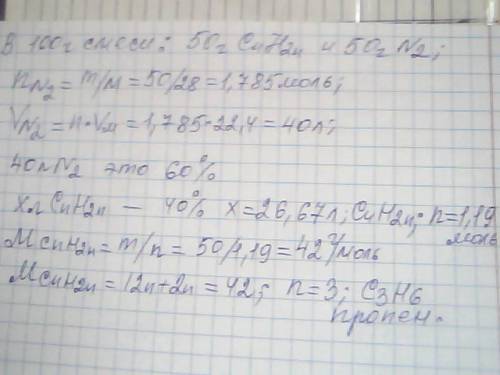 В 100г смеси: 50г CnH2n и 50г N2;
nN2 = m/M = 50/28 = 1,785 моль;
VN2 = n·Vм = 1,785·22,4 = 40л;
40л N2 это 60%
Xл CnH2n — 40% x = 26,67л; CnH2n: n = 1,19 моль
M CnH2n = m/n = 50/1,19 = 42 г/моль
M CnH2n = 12n + 2n = 42; n = 3; C3H6
пропен.